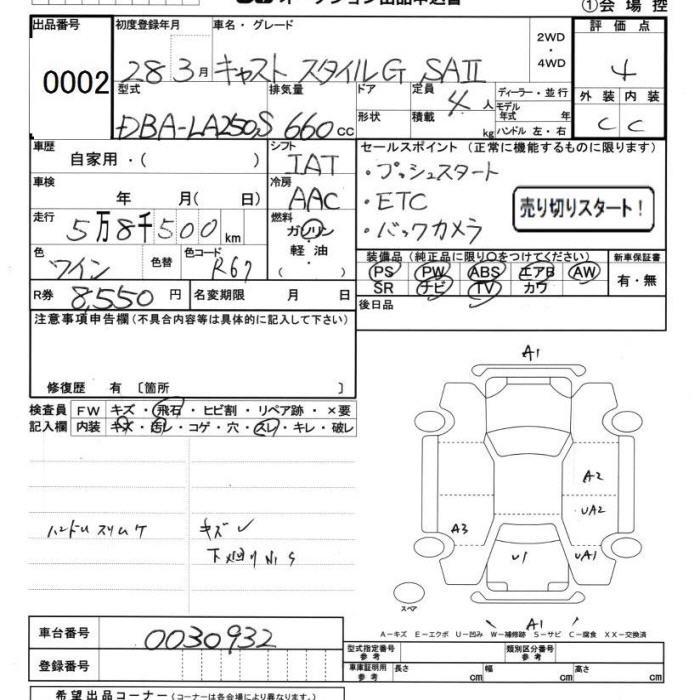 オークション出品申込書
①会場控
出品番号 初度登録年月 車名・グレード 2WD・4WD 評価点
0002 28 3月 キャスト スタイルG SAⅡ 4
型式 排気量 ドア 定員 4人 ディーラー・並行 外装 内装
DBA-LA250S 660cc 形状 積載 kg モデル年式 年 ハンドル 左・右 C C
車歴 自家用・( ) シフト IAT セールスポイント (正常に機能するものに限ります)
車検 年 月( 日) 冷房 AAC ・プッシュスタート
・ETC
・バックカメラ
売り切りスタート!
走行 5万8千500km 燃料 ガソリン 軽・油 ( )
色 ワイン 色替 色コード R67
装備品 (純正品に限り○をつけてください) 新車保証書
PS PW ABS エアB AW 有・無
SR ナビ TV カワ
R券 8,550円 名変期限 月 日 後日品
注意事項申告欄(不具合内容等は具体的に記入して下さい)
修復歴 有 〔箇所 〕
検査員記入欄 FW キズ・飛石・ヒビ割・リペア跡・×要
内装 キズ・汚レ・コゲ・穴・スレ・キレ・破レ
ハンドル スリムケ キズ
A1
A2
UA2
A3
U1
UA1
A1
スペア
A-キズ E-エクボ U-凹み W-補修跡 S-サビ C-腐食 XX-交換済
車台番号 0030932
登録番号
型式指定番号 参考 類別区分番号 参考
車庫証明用 参考 長さ cm 幅 cm 高さ cm
希望出品コーナー (コーナーは各会場により異なります。)